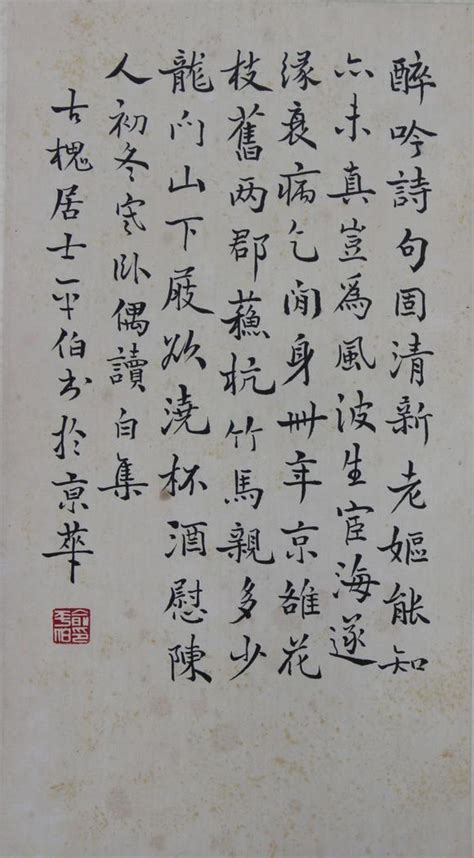 醉吟詩句固清新老嫗能知
亦未真豈為風波生宦海遂
緣衰病乞閒身卅年京雒花
枝舊两郡蘓杭竹馬親多少
龍门山下屐欲澆杯酒慰陳
人初冬寒卧偶讀白集
古槐居士平伯书於京華
俞印平伯